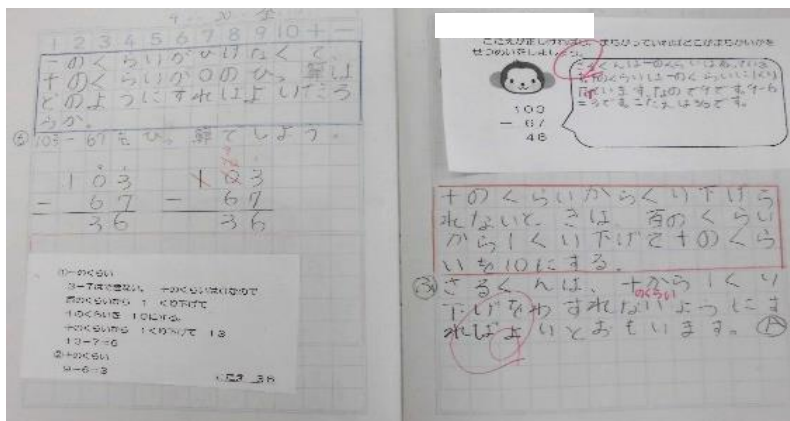 1 2 3 4 5 6 7 8 9 10 + −
一のくらいがひけなくて、
十のくらいが0のひっ算は
どのようにすればよいだろ
うか。
103−67をひっ算でしよう。
103
− 67
36
103
− 67
36
①一のくらい
3−7はできない。 十のくらいは0なので
百のくらいから 1 くり下げて
十のくらいを 10にする。
十のくらいから 1 くり下げて 13
13−7=6
②十のくらい
9−6=3
こたえ 36
こたえが正しければ○、まちがっていればどこがまちがいかを
せつめいをしましょう。
103
− 67
46
さるくんは一のくらいはあっている
十のくらいは一のくらいにくり
ます。なので9です。9−6
=3です。こたえは36です。
十のくらいからくり下げら
れないときは、百のくらい
から1くり下げて十のくら
いを10にする。
さるくんは、十から1くり
のくらい
下げをわすれないようにす
ればよいとおもいます。 A